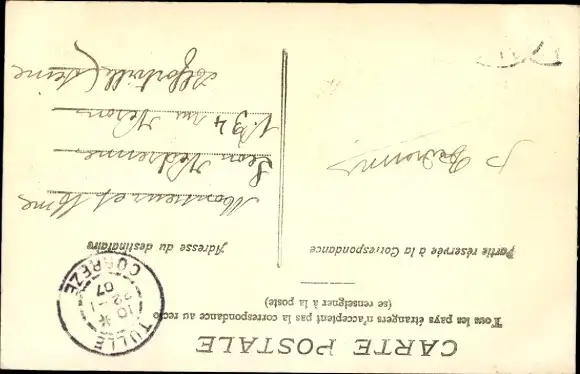 CARTE POSTALE
Tous les pays étrangers n'acceptent pas la correspondance au recto
(se renseigner à la poste)
Partie réservée à la Correspondance
Adresse du destinataire
TULLE
10 *
22-1
07
CORREZE
Monsieur et Mme
Léon Vedrenne
N: 34 rue Véron
Alfortville (Seine